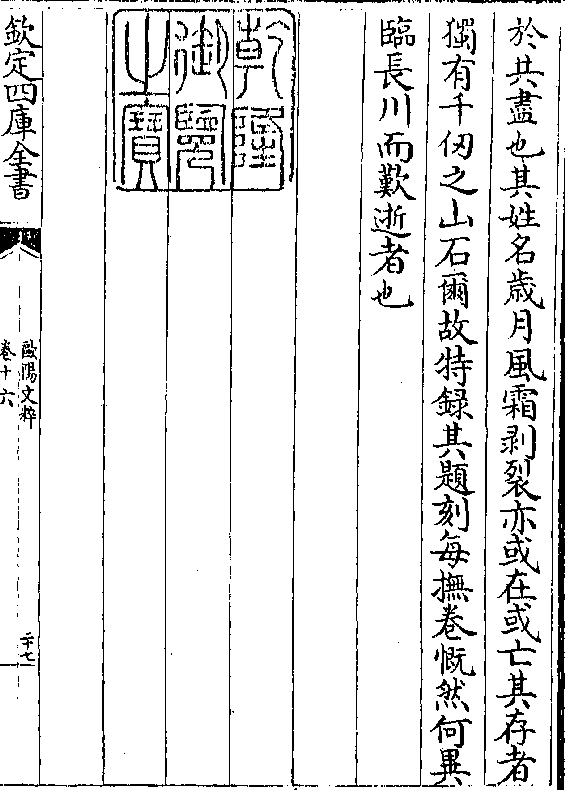 於共盡也其姓名歲月風霜剥裂亦或在或亡其存者
獨有千仞之山石爾故特録其題刻每撫卷慨然何異
臨長川而歎逝者也
乾隆
御覽
之寶
欽定四庫全書
歐陽文粹
卷十六
二十七